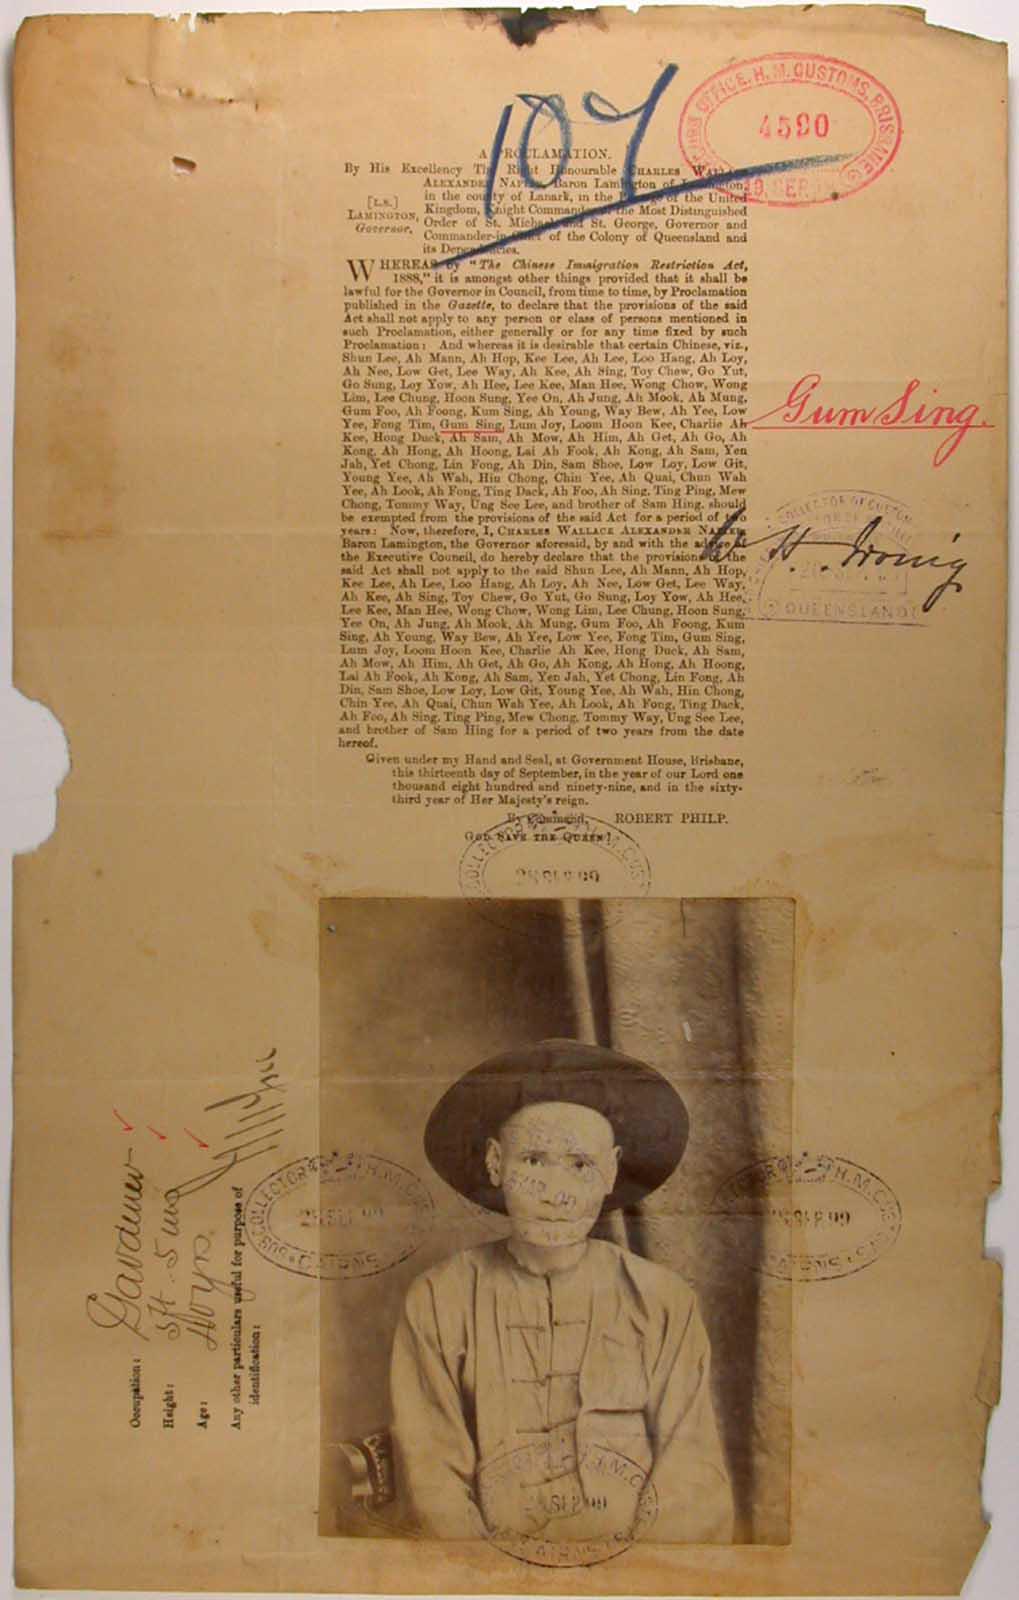 107
OFFICE, H. M. CUSTOMS, BRISBANE
4590
19. SEP.
A PROCLAMATION.
By His Excellency The Right Honourable CHARLES WALLACE
ALEXANDER NAPIER, Baron Lamington of Lamington,
in the county of Lanark, in the Peerage of the United
Kingdom, Knight Commander of the Most Distinguished
Order of St. Michael and St. George, Governor and
Commander-in-Chief of the Colony of Queensland and
its Dependencies.
[L.S.]
LAMINGTON,
Governor.
WHEREAS by "The Chinese Immigration Restriction Act,
1888," it is amongst other things provided that it shall be
lawful for the Governor in Council, from time to time, by Proclamation
published in the Gazette, to declare that the provisions of the said
Act shall not apply to any person or class of persons mentioned in
such Proclamation, either generally or for any time fixed by such
Proclamation: And whereas it is desirable that certain Chinese, viz.,
Shun Lee, Ah Mann, Ah Hop, Kee Lee, Ah Lee, Loo Hang, Ah Loy,
Ah Nee, Low Get, Lee Way, Ah Kee, Ah Sing, Toy Chew, Go Yut,
Go Sung, Loy Yow, Ah Hee, Lee Kee, Man Hee, Wong Chow, Wong
Lim, Lee Chung, Hoon Sung, Yee On, Ah Jung, Ah Mook, Ah Mung,
Gum Foo, Ah Foong, Kum Sing, Ah Young, Way Bew, Ah Yee, Low
Yee, Fong Tim, Gum Sing, Lum Joy, Loom Hoon Kee, Charlie Ah
Kee, Hong Duck, Ah Sam, Ah Mow, Ah Him, Ah Get, Ah Go, Ah
Kong, Ah Hong, Ah Hoong, Lai Ah Fook, Ah Kong, Ah Sam, Yen
Jah, Yet Chong, Lin Fong, Ah Din, Sam Shoe, Low Loy, Low Git,
Young Yee, Ah Wah, Hin Chong, Chin Yee, Ah Quai, Chun Wah
Yee, Ah Look, Ah Fong, Ting Dack, Ah Foo, Ah Sing, Ting Ping, Mew
Chong, Tommy Way, Ung See Lee, and brother of Sam Hing, should
be exempted from the provisions of the said Act for a period of two
years: Now, therefore, I, CHARLES WALLACE ALEXANDER NAPIER,
Baron Lamington, the Governor aforesaid, by and with the advice of
the Executive Council, do hereby declare that the provisions of the
said Act shall not apply to the said Shun Lee, Ah Mann, Ah Hop,
Kee Lee, Ah Lee, Loo Hang, Ah Loy, Ah Nee, Low Get, Lee Way,
Ah Kee, Ah Sing, Toy Chew, Go Yut, Go Sung, Loy Yow, Ah Hee,
Lee Kee, Man Hee, Wong Chow, Wong Lim, Lee Chung, Hoon Sung,
Yee On, Ah Jung, Ah Mook, Ah Mung, Gum Foo, Ah Foong, Kum
Sing, Ah Young, Way Bew, Ah Yee, Low Yee, Fong Tim, Gum Sing,
Lum Joy, Loom Hoon Kee, Charlie Ah Kee, Hong Duck, Ah Sam,
Ah Mow, Ah Him, Ah Get, Ah Go, Ah Kong, Ah Hong, Ah Hoong,
Lai Ah Fook, Ah Kong, Ah Sam, Yen Jah, Yet Chong, Lin Fong, Ah
Din, Sam Shoe, Low Loy, Low Git, Young Yee, Ah Wah, Hin Chong,
Chin Yee, Ah Quai, Chun Wah Yee, Ah Look, Ah Fong, Ting Dack,
Ah Foo, Ah Sing, Ting Ping, Mew Chong, Tommy Way, Ung See Lee,
and brother of Sam Hing for a period of two years from the date
hereof.
Given under my Hand and Seal, at Government House, Brisbane,
this thirteenth day of September, in the year of our Lord one
thousand eight hundred and ninety-nine, and in the sixty-
third year of Her Majesty's reign.
By Command, ROBERT PHILP.
GOD SAVE THE QUEEN!
Gum Sing.
COLLECTOR OF CUSTOMS
QUEENSLAND
SUB COLLECTOR H.M. CUS
25 SEP 99
SUB COLLECTOR OF H.M. CUS
25 SEP 99
CAIRNS
H.M. CUSTOMS
25 SEP 99
CAIRNS
H.M. CUSTOMS
25 SEP 99
CAIRNS
Occupation: Gardener
Height: 5ft 5ins
Age: 40 yrs.
Any other particulars useful for purpose of
identification: